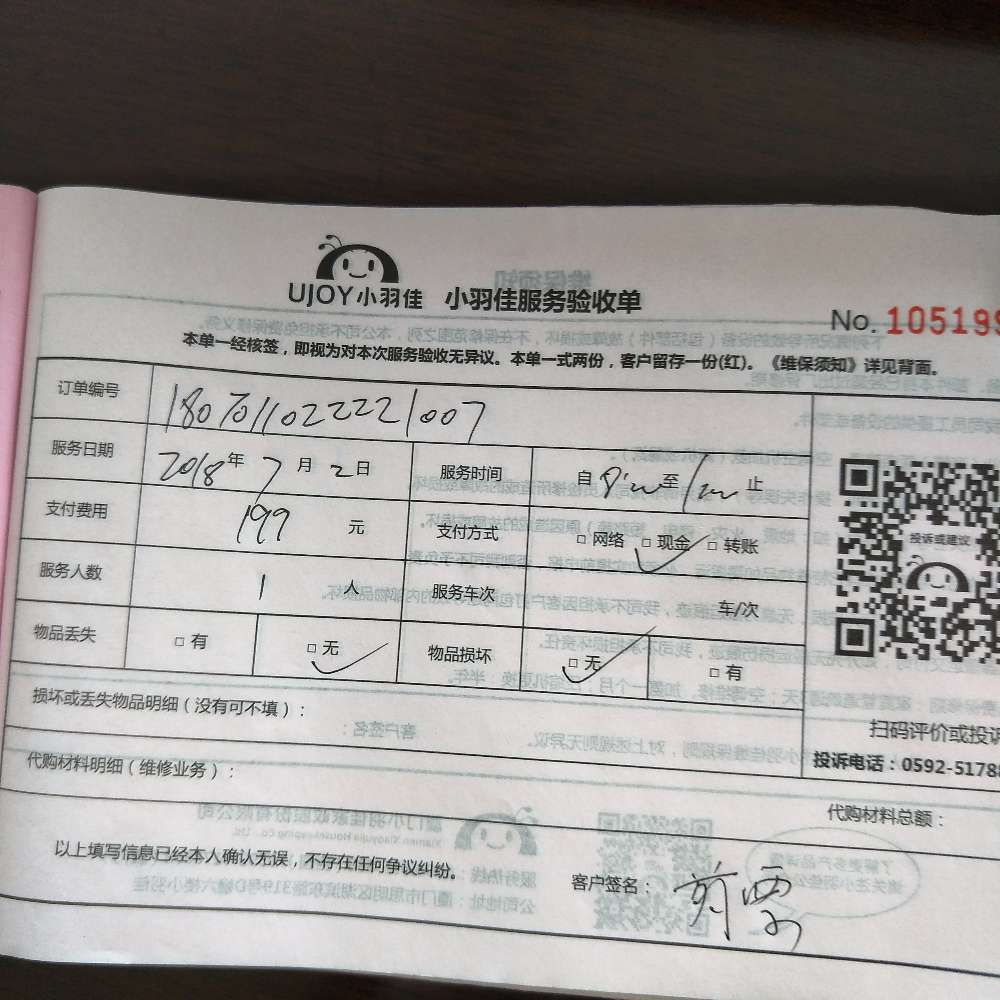 UJOY小羽佳 小羽佳服务验收单
No. 105199
本单一经核签，即视为对本次服务验收无异议。本单一式两份，客户留存一份(红)。《维保须知》详见背面。
订单编号 1807011022221007
服务日期 2018年7月2日 服务时间 自 至 止
支付费用 199 元 支付方式 □ 网络 □ 现金 □ 转账
投诉或建议
服务人数 1 人 服务车次 车/次
物品丢失 □ 有 □ 无 物品损坏 □ 无 □ 有
损坏或丢失物品明细（没有可不填）：
扫码评价或投诉
投诉电话：0592-5178
代购材料明细（维修业务）：
代购材料总额：
以上填写信息已经本人确认无误，不存在任何争议纠纷。
客户签名：